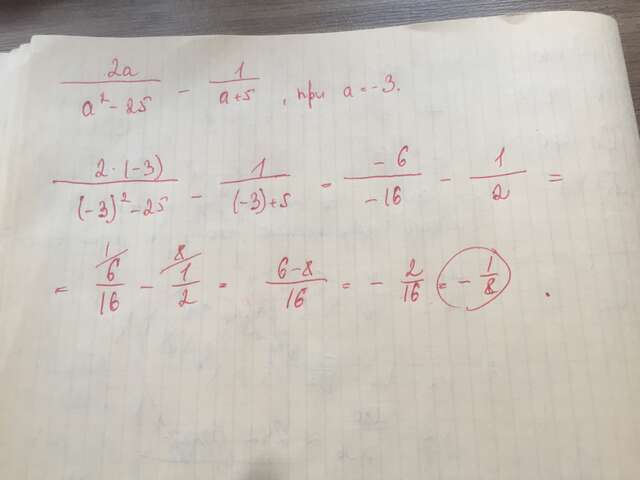 2a/(a²-25) - 1/(a+5), при a=-3.
2·(-3)/((-3)²-25) - 1/((-3)+5) = -6/-16 - 1/2 =
= ¹⁄ 6/16 - ⁸⁄ 1/2 = (6-8)/16 = - 2/16 = - 1/8.